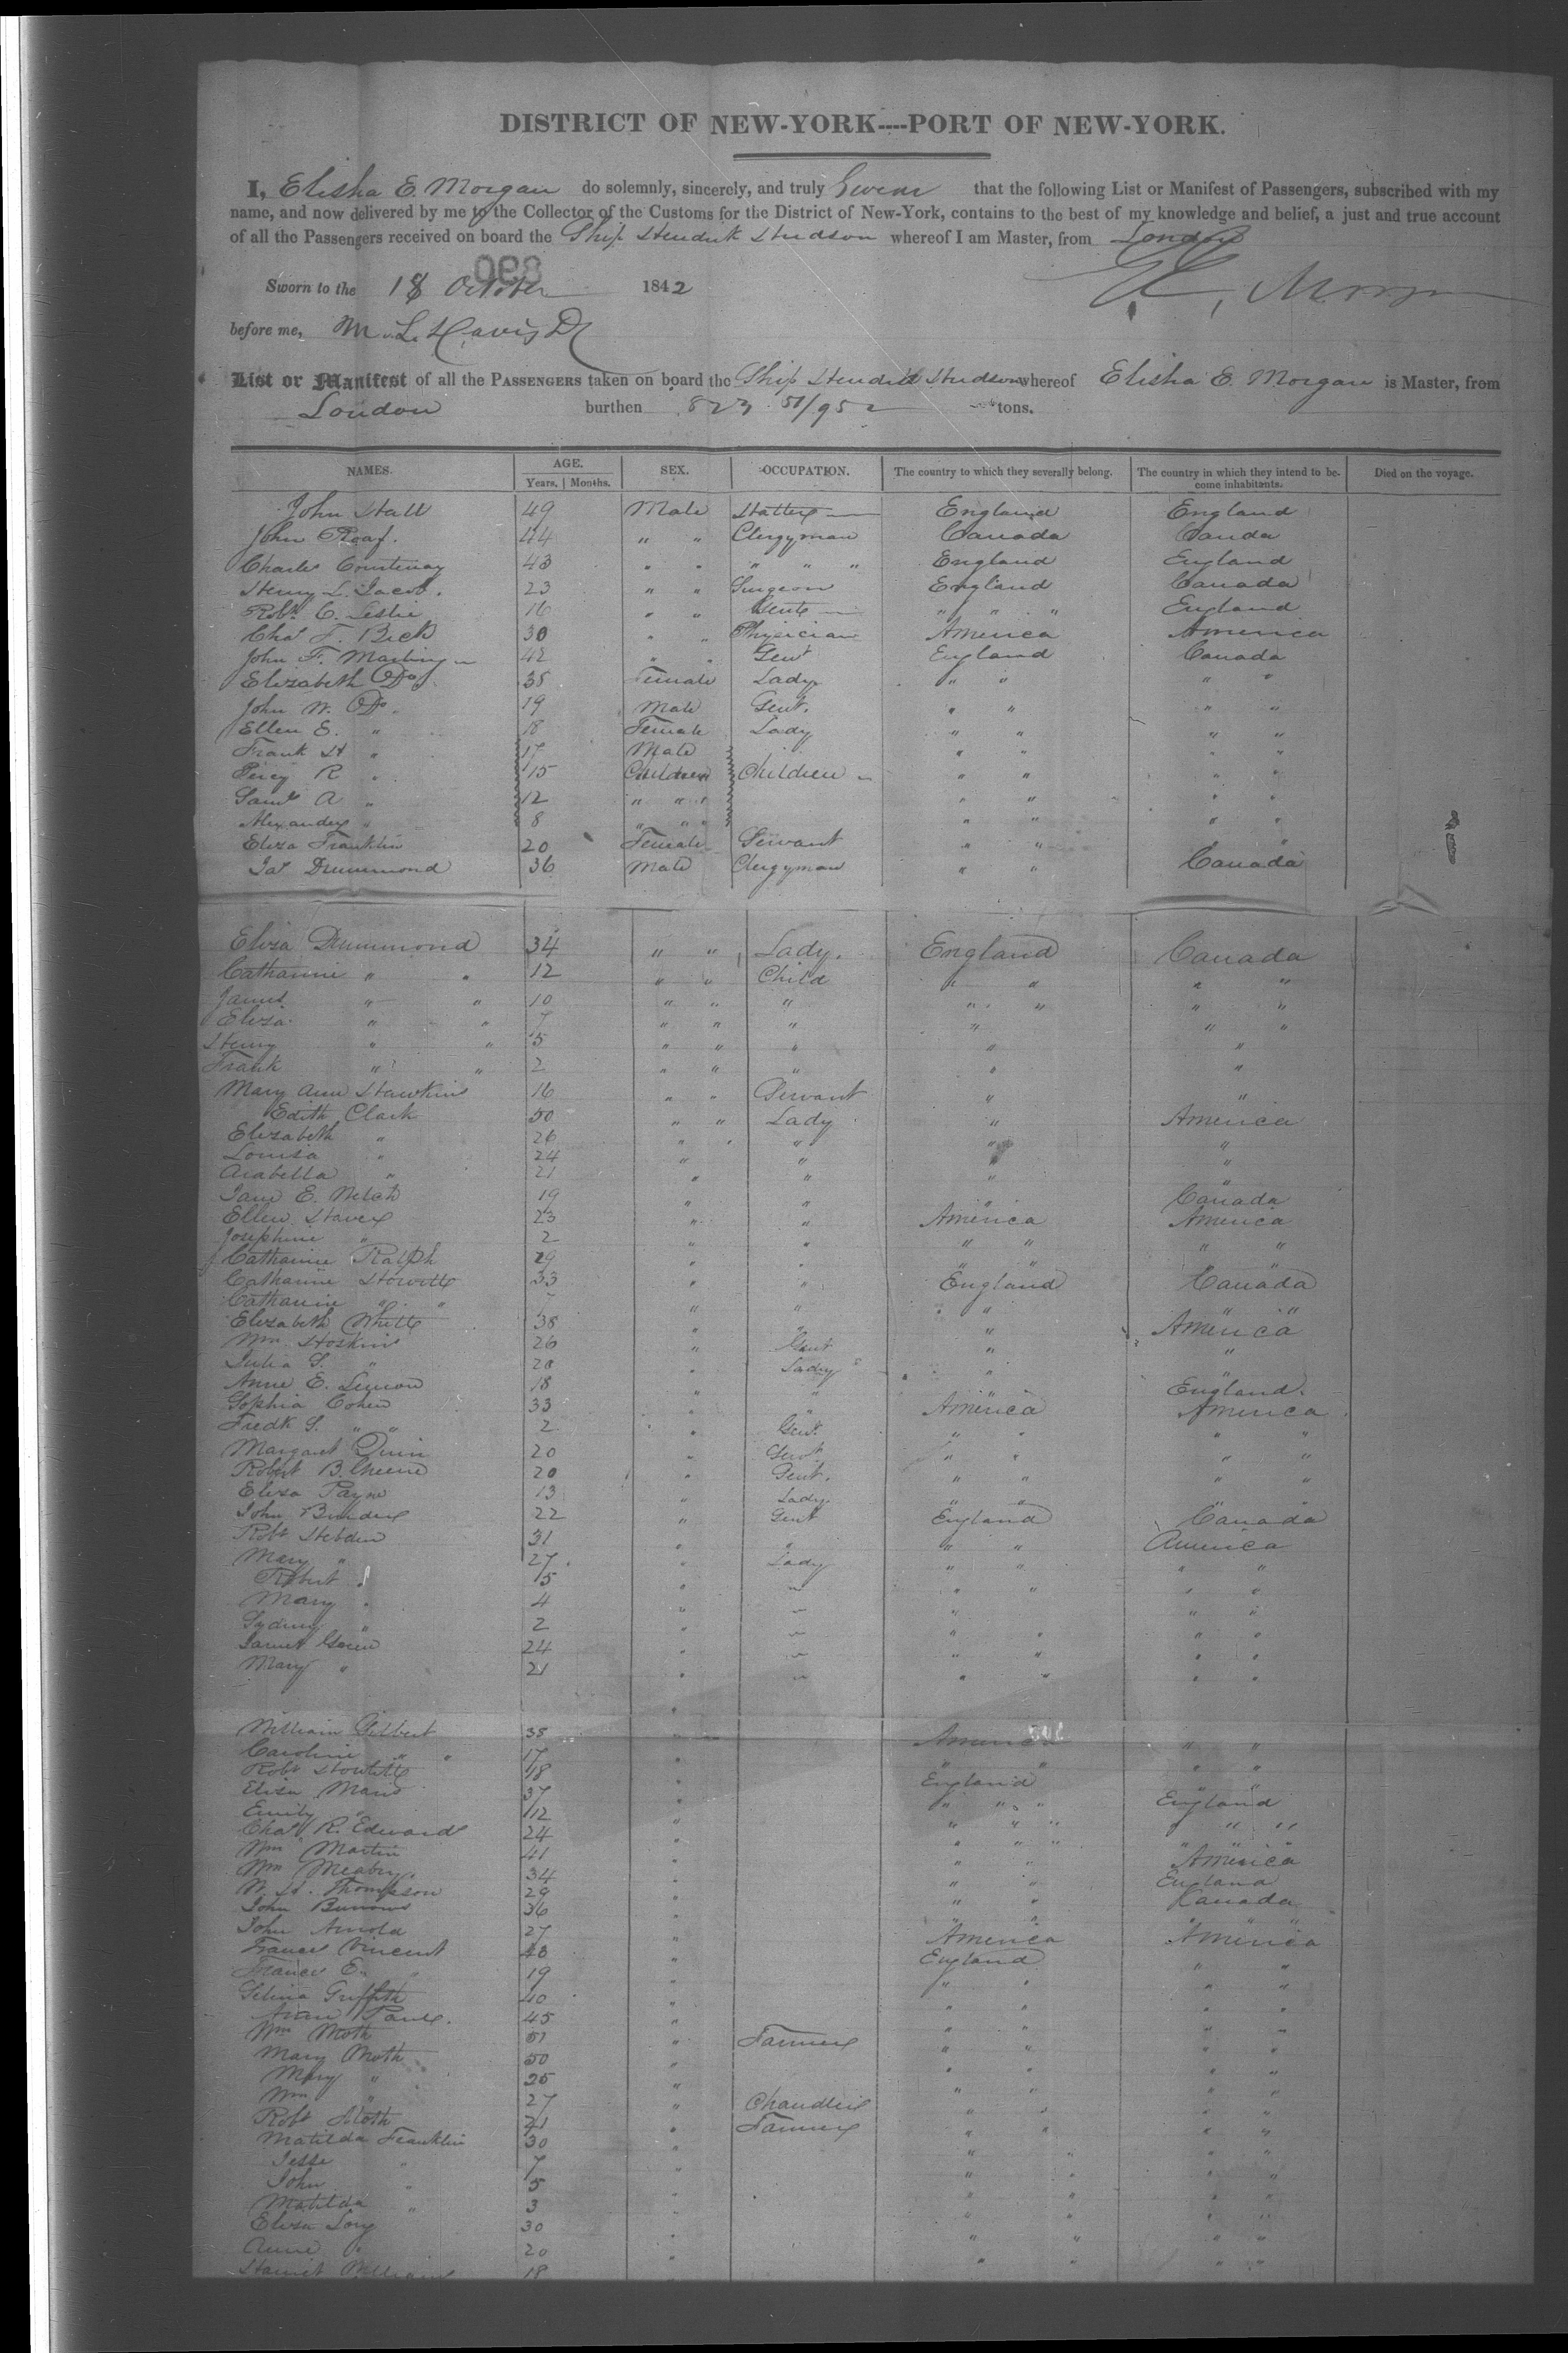 DISTRICT OF NEW-YORK----PORT OF NEW-YORK.
I, Elisha E. Morgan do solemnly, sincerely, and truly Swear that the following List or Manifest of Passengers, subscribed with my
name, and now delivered by me to the Collector of the Customs for the District of New-York, contains to the best of my knowledge and belief, a just and true account
of all the Passengers received on board the Ship Hendrik Hudson whereof I am Master, from London
Sworn to the 18 October 1842
before me,
List or Manifest of all the PASSENGERS taken on board the Ship Hendrik Hudson whereof Elisha E. Morgan is Master, from
London burthen 823 tons.
NAMES. AGE. Years. | Months. SEX. OCCUPATION. The country to which they severally belong. The country in which they intend to become inhabitants. Died on the voyage.
John Hall 49 Male Hatter England England
John Roaf. 44 " " Clergyman Canada Canada
Charles Courtenay 43 " " " " " England England
Henry L. Jacob. 23 " " Surgeon England Canada
Robt. C. Leslie 16 " " Gent " " " England
Chas F. Beck 30 " " Physician America America
John F. 42 " " Gent England Canada
Elizabeth Do 35 Female Lady " " " "
John W. Do. 19 Male Gent. " " " "
Ellen E. " 18 Female Lady " " " "
Frank H " 17 Male " " " "
Percy R " 15 Children Children " " " "
Saml A " 12 " " " " " " "
Alexander " 8 " " " " " " "
Eliza Franklin 20 Female Servant " " "
Jas Drummond 36 Male Clergyman " " Canada
Eliza Drummond 34 " " Lady. England Canada
Catharine " " 12 " " Child " " " "
James " " 10 " " " " " " "
Eliza " " 7 " " " " " "
Henry " " 5 " " " " "
Frank " " 2 " " " " "
Mary Ann Hawkins 16 " " Servant " "
Edith Clark 50 " " Lady " America
Elizabeth " 26 " " " " "
Louisa " 24 " " " "
Arabella " 21 " " " "
Jane E. Welch 19 " " Canada
Ellen 23 " " America America
Josephine " 2 " " " " " "
Catharine Ralph 29 " " " " " "
Catharine Howitt 33 " " England Canada
Catharine " " 7 " " " " " "
Elizabeth White 38 " " " America
Wm. Hoskins 26 " Gent " "
Julia S. " 20 " Lady " "
Anne E. Lemon 18 " " " England.
Sophia Cohen 33 " " America America
Fredk S. " " 2 " Gent. " " " "
Margaret Quin 20 " Servt " " " "
Robert B. Greene 20 " Gent. " " " "
Eliza Payne 13 " Lady. " " "
John 22 " Gent England Canada
Robt Hebden 31 " " " " America
Mary " 27 " Lady " " " "
Robert " 5 " " " " "
Mary " 4 " " " "
Sydney " 2 " " " " "
Green 24 " " " " "
Mary " 21 " " " " "
William Gilbert 35 America " "
Caroline " " 17 " " " " "
Robt Howitt 18 " England " "
Eliza 37 " " " " England
Emily " 12 " " " " " "
Chas R. Edwards 24 " " " " " " "
Wm Martin 41 " " " America
Wm 34 " " " England
W. H. Thompson 29 " " " Canada
John Burrows 36 " " " " "
John Arnold 27 " America America
Frances Vincent 43 " England " "
Frances E. " 19 " " " " "
Selina Griffith 40 " " " " "
45 " " " " "
Wm Moth 51 " Farmer " " " "
Mary Moth 50 " " " " "
Mary " 25 " " " " "
Wm " 27 " Chandler " " " "
Robt Moth 21 " Farmer " " " "
Matilda Franklin 30 " " " " "
Jesse " 7 " " " " "
John " 5 " " " " "
Matilda " 3 " " " " "
Eliza 30 " " " " "
Anne " 20 " " " " "
Harriet 18